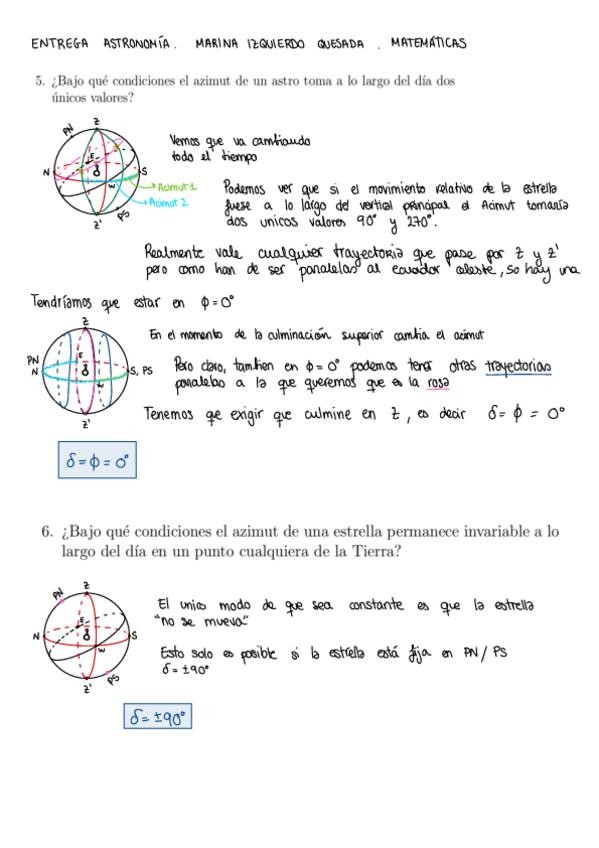 ENTREGA ASTRONOMÍA. MARINA IZQUIERDO QUESADA. MATEMÁTICAS
5. ¿Bajo qué condiciones el azimut de un astro toma a lo largo del día dos
únicos valores?
PN
Z
N
E
S
W
Z'
PS
Acimut 1
Acimut 2
Vemos que va cambiando
todo el tiempo
Podemos ver que si el movimiento relativo de la estrella
fuese a lo largo del vertical principal el Acimut tomaría
dos unicos valores 90° y 270°.
Realmente vale cualquier trayectoria que pase por Z y Z'
pero como han de ser paralelas al ecuador celeste, so hay una
Tendríamos que estar en ϕ=0°
Z
PN
N
E
S, PS
W
Z'
En el momento de la culminación superior cambia el acimut
Pero claro, tambien en ϕ=0° podemos tener otras trayectorias
paralelas a la que queremos que es la rosa
Tenemos qe exigir que culmine en Z, es decir δ=ϕ=0°
δ=ϕ=0°
6. ¿Bajo qué condiciones el azimut de una estrella permanece invariable a lo
largo del día en un punto cualquiera de la Tierra?
PN
Z
N
E
S
W
Z'
PS
El unico modo de que sea constante es que la estrella
"no se mueva"
Esto solo es posible si la estrella está fija en PN/PS
δ=±90°
δ=±90°